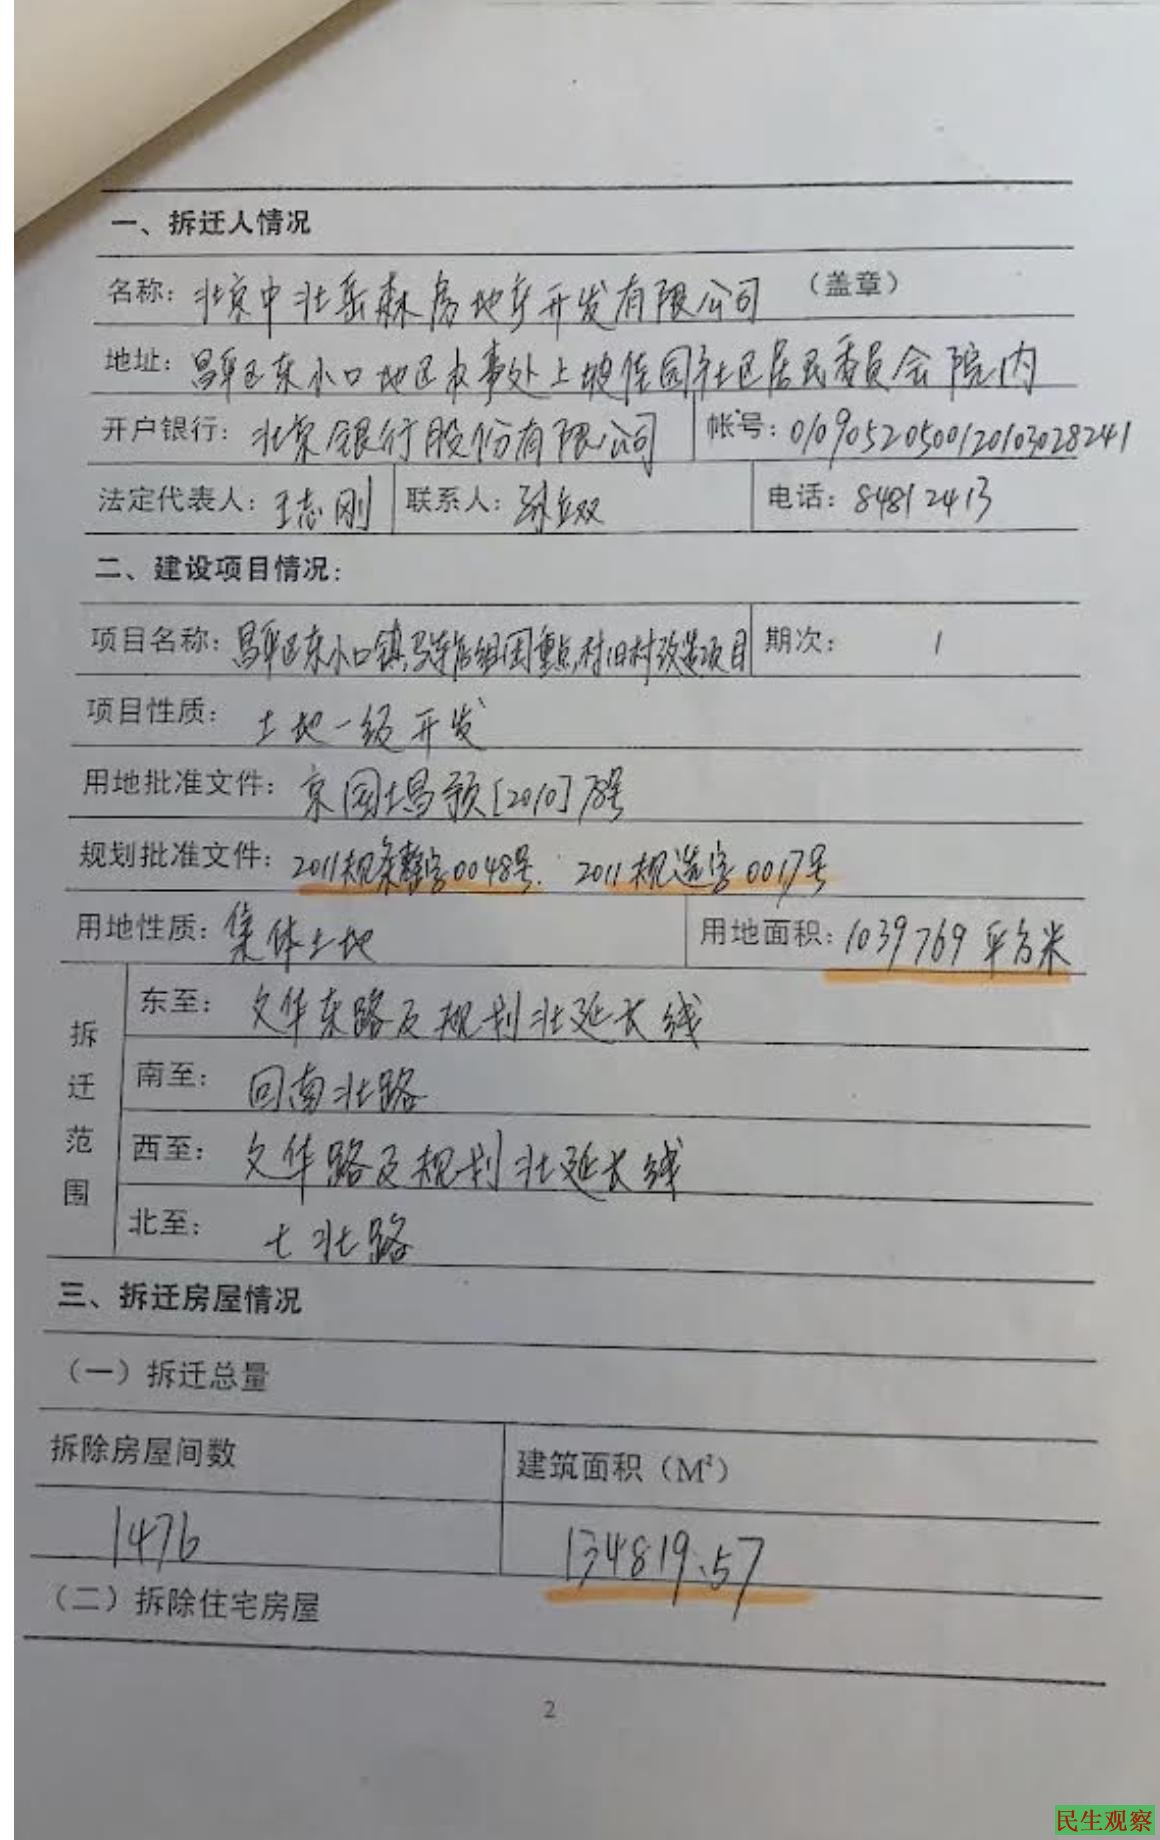 一、拆迁人情况
名称: 北京中北岳森房地产开发有限公司 （盖章）
地址: 昌平区东小口地区办事处上坡佳园社区居民委员会院内
开户银行: 北京银行股份有限公司 帐号: 01090520500120103028241
法定代表人: 王志刚 联系人: 孙立双 电话: 84812413
二、建设项目情况:
项目名称: 昌平区东小口镇马连店组团重点村旧村改造项目 期次: 1
项目性质: 土地一级开发
用地批准文件: 京国土昌预[2010]78号
规划批准文件: 2011规条整字0048号. 2011规选字0017号
用地性质: 集体土地 用地面积: 1039769平方米
拆迁范围
东至: 文华东路及规划北延长线
南至: 回南北路
西至: 文华路及规划北延长线
北至: 七北路
三、拆迁房屋情况
（一）拆迁总量
拆除房屋间数 建筑面积（M²）
1476 134819.57
（二）拆除住宅房屋
2
民生观察